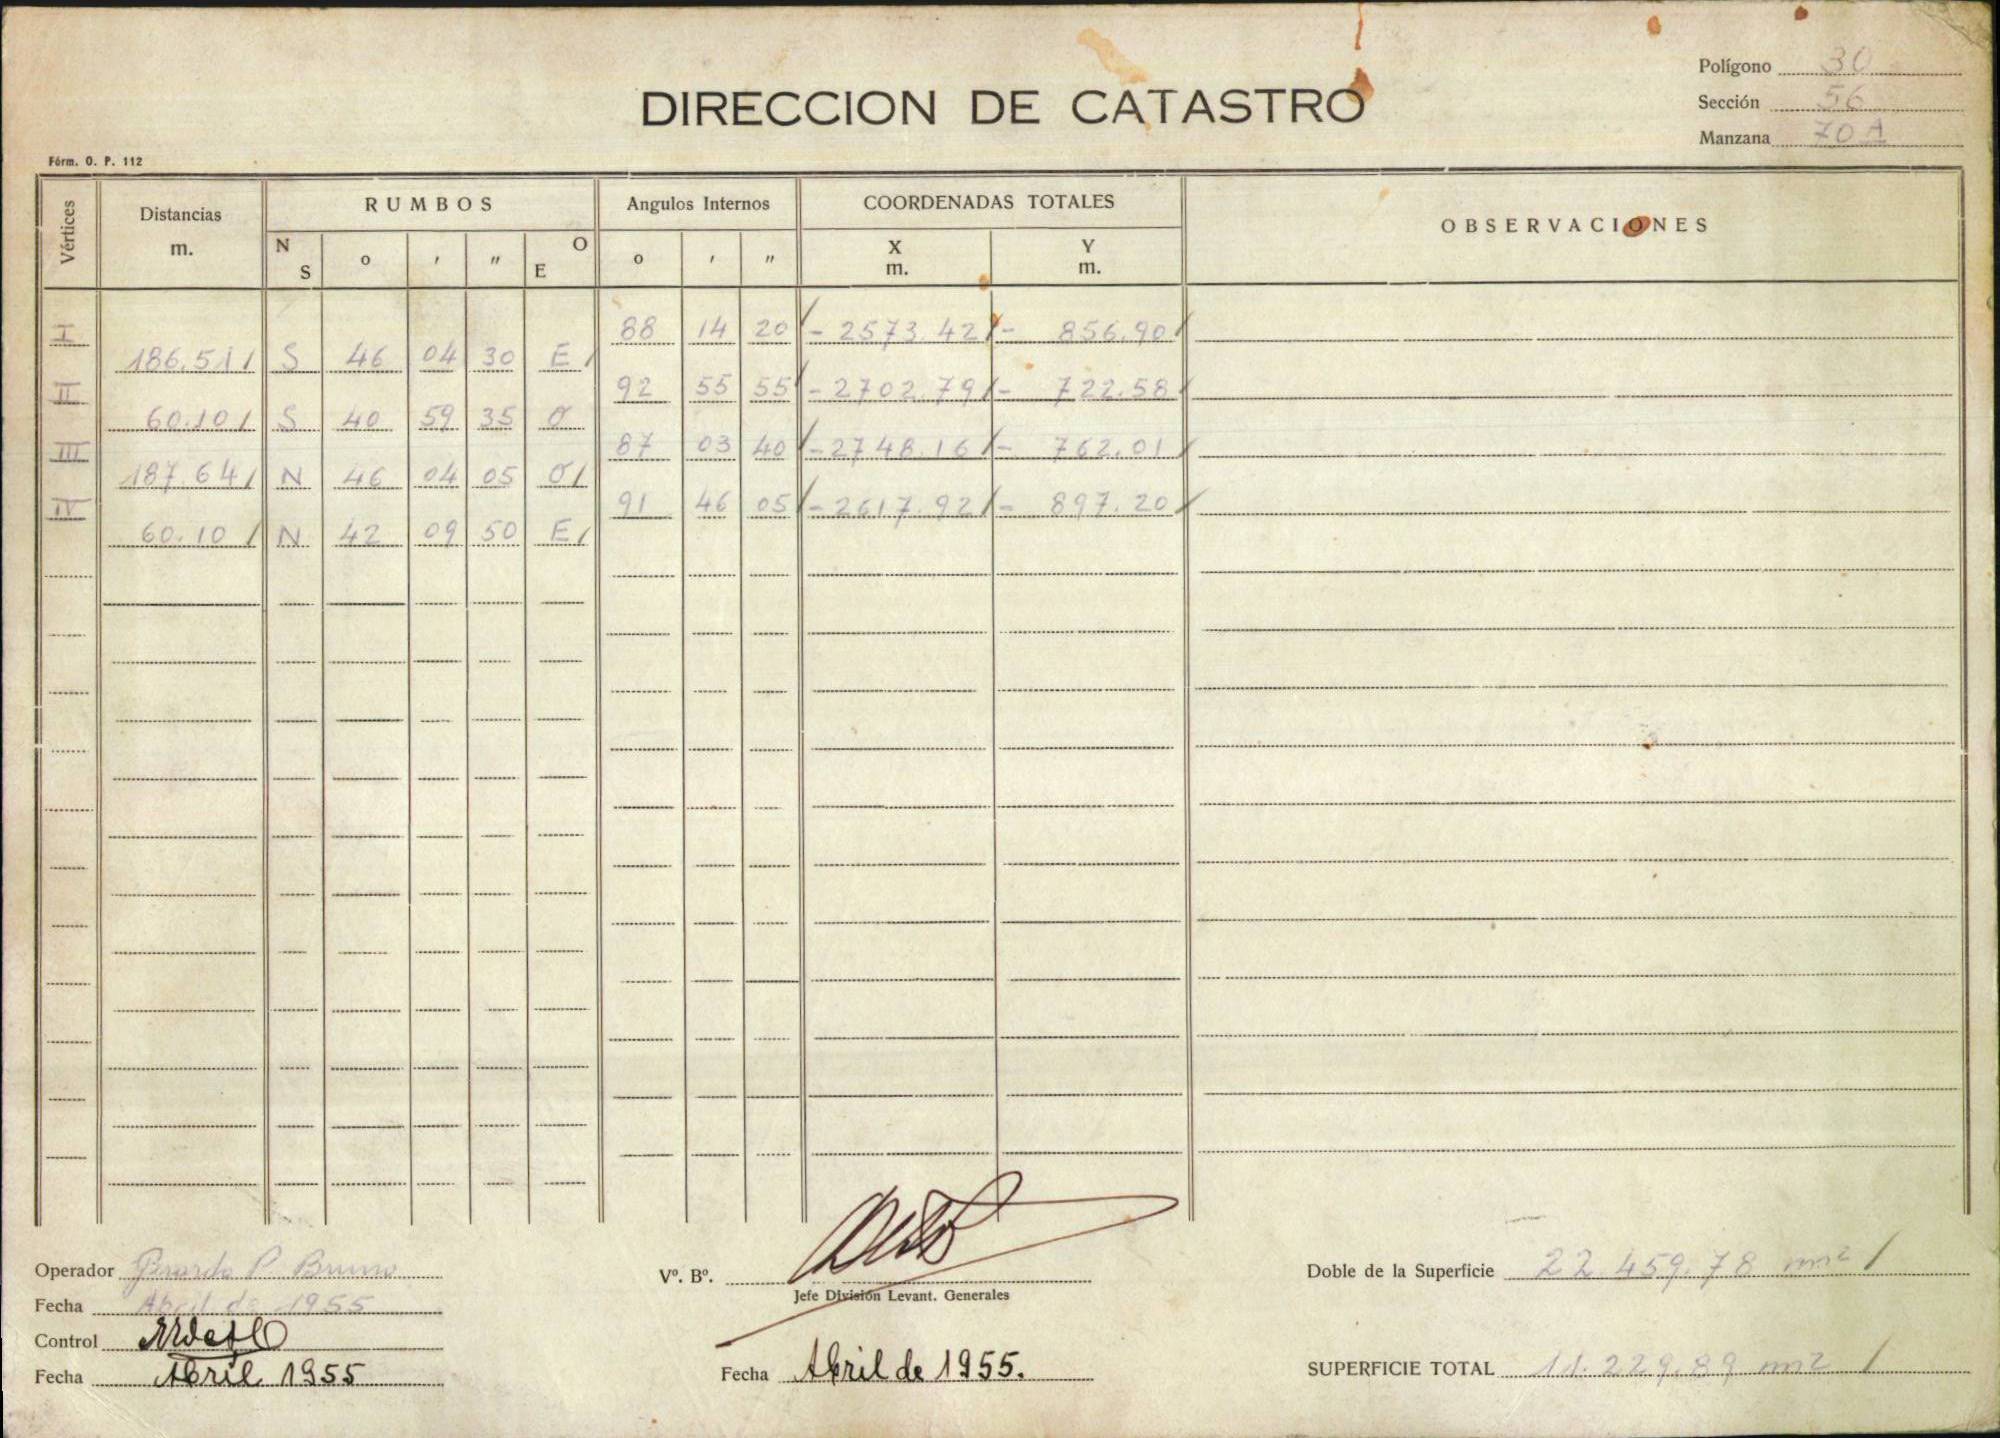 Polígono 30
DIRECCION DE CATASTRO
Sección 56
Manzana 70 A
Fórm. O. P. 112
Vértices
Distancias m.
RUMBOS
N S o ' " O E
Angulos Internos
o ' "
COORDENADAS TOTALES
X m. Y m.
OBSERVACIONES
I 88 14 20 - 2573.42 - 856.90
186.51 S 46 04 30 E
II 92 55 55 - 2702.79 - 722.58
60.10 S 40 59 35 O
III 87 03 40 - 2748.16 - 762.01
187.64 N 46 04 05 O
IV 91 46 05 - 2617.92 - 897.20
60.10 N 42 09 50 E
Operador Gerardo P. Bruno
Fecha Abril de 1955
Control
Fecha Abril 1955
Vº. Bº.
Jefe División Levant. Generales
Fecha Abril de 1955.
Doble de la Superficie 22.459.78 m2
SUPERFICIE TOTAL 11.229.89 m2